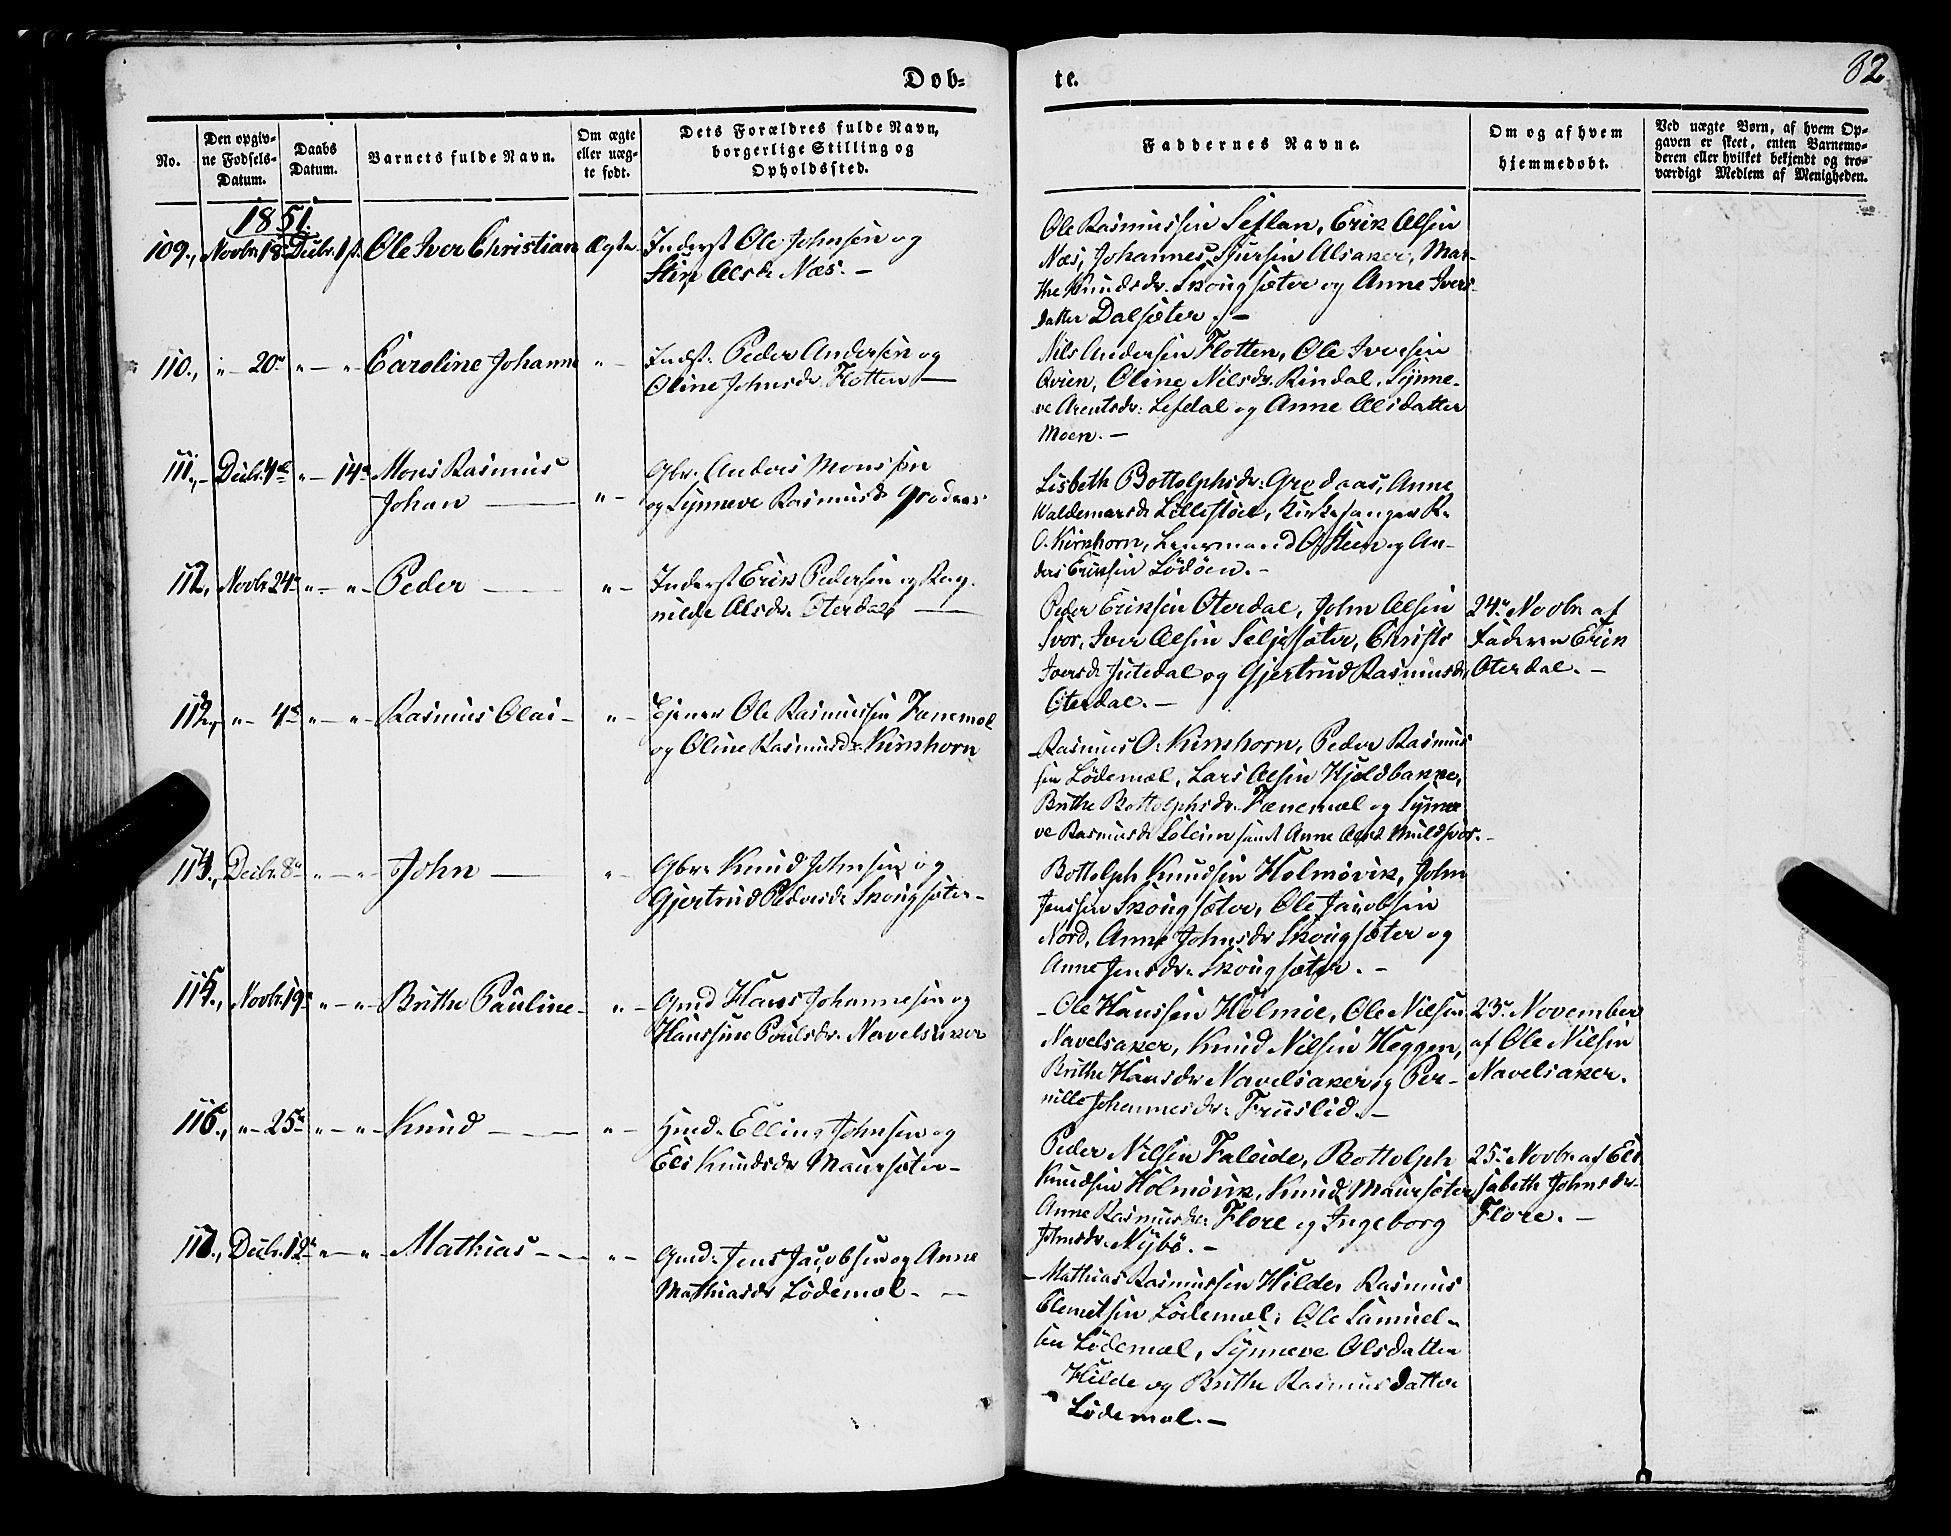 Døb=
te.
82
No.
Den opgiv=
ne Fødsels=
Datum.
Daabs
Datum.
Barnets fulde Navn.
Om ægte
eller uæg=
te født.
Dets Forældres fulde Navn,
borgerlige Stilling og
Opholdssted.
Faddernes Navne.
Om og af hvem
hjemmedøbt.
Ved uægte Børn, af hvem Op=
gaven er skeet, enten Barnemo=
deren eller hvilket bekjendt og tro=
værdigt Medlem af Menigheden.
1851.
109., Novbr. 18 Decbr. 1st. Ole Iver Christian Ægte Inderst Ole Johnsen og
Næs. –
Ole Rasmussen Seflan, Erik Olsen
Næs, Johannes Sjursen Alsaker, Mar-
the Knudsdr. Skougsæter og Anne Ivers-
datter Dalsæter. –
110., " – 20de " – " Caroline Johanne " – Indst. Peder Andersen og
Oline Johnsdr. Flotten –
Nils Andersen Flotten, Ole Iversen
Qvien, Oline Nilsdr. Rindal, Synne-
ve Arentsdr. Lefdal og Anne Olsdatter
Moen. –
111., – Decbr. 4de " – 14de Mons Rasmus
Johan – " – Gbr. Anders Monssen
og Synneve Rasmusdr. Grodaas
Lisbeth Bottolphsdr. Grodaas, Anne
Waldemarsdr. Lillestøl, Kirkesanger R.
O. Kirkhorn, Lensmand O. Steen og An-
ders Eriksen Lødøen. –
112., Novbr. 24de " – " – Peder – " – Inderst Erik Pedersen og Rag-
nilde Olsdr. Oterdal –
Peder Eriksen Oterdal, John Olsen
Svor, Iver Olsen Seljesæter, Christi
Iversdr. Jutedal og Gjertrud Rasmusdr.
Oterdal. –
24de Novbr. af
Faderen Erik
Oterdal. –
113., " – 4de " – " – Rasmus Olai – " – Ejener Ole Rasmussen Fænemæl
og Oline Rasmusdr. Kirkhorn
Rasmus O. Kirkhorn, Peder Rasmus-
sen Lødemæl, Lars Olsen Hjeldbakke,
Brithe Bottolphsdr. Fænemæl og Synne-
ve Rasmusdr. Soleim samt Anne Olsdr. Muldsvor. –
114., Decbr. 8de " – " – John – " – Gbr. Knud Johnsen og
Gjertrud Pedersdr. Skougsæter –
Bottolph Knudsen Holmøvik, John
Jenssen Skougsæter, Ole Jacobsen
Nord, Anne Johnsdr. Skougsæter og
Anne Jensdr. Skougsæter. –
115., Novbr. 19de " – " – Brithe Pauline – " – Gmd Hans Johannesen og
Hanssine Poulsdr. Navelsaker
– Ole Hanssen Holmøe, Ole Nilsen
Navelsaker, Knud Nilsen Heggen,
Brithe Hansdr. Navelsaker og Per-
nille Johannesdr. Fruslid. –
23de November
af Ole Nilsen
Navelsaker.
116., " – 25de " – " – Knud – " – Hmd. Elling Johnsen og
Eli Knudsdr. Maursæter –
Peder Nilsen Faleide, Bottolph
Knudsen Holmøvik, Knud Maursæter
Anne Rasmusdr. Flore og Ingeborg
Johnsdr. Nybø. –
25de Novbr. af Eli-
sabeth Johnsdr.
Flore. –
117., Decbr. 12te " – " – Mathias – " – Gmd. Jens Jacobsen og Anne
Mathiasdr. Lødemæl. –
– Mathias Rasmussen Hilde, Rasmus
Clemetsen Lødemæl, Ole Samuel-
sen Lødemæl, Synneve Olsdatter
Hilde og Brithe Rasmusdatter
Lødemæl. –